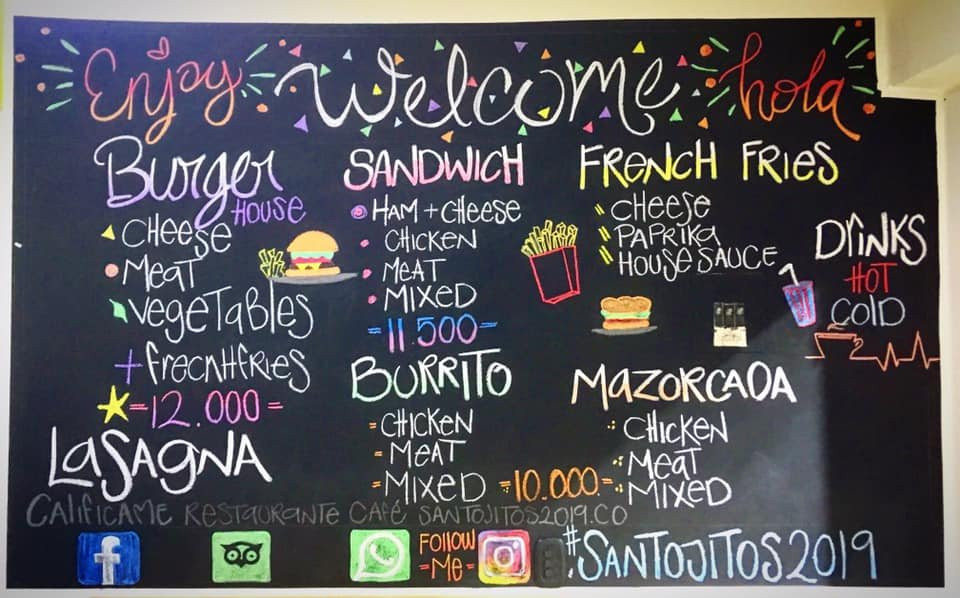 Enjoy Welcome hola
Burger
HOUSE
CHEESE
MEAT
VEGETABLES
+ frecnHfries
=12.000=
SANDWICH
HAM + CHEESE
CHICKEN
MEAT
MIXED
=11.500=
FRENCH FRIES
CHEESE
PAPRIKA
HOUSE SAUCE
DRINKS
HOT
COLD
LASAGNA
BURRITO
CHICKEN
MEAT
MIXED
=10.000=
MAZORCADA
CHICKEN
MEAT
MIXED
CALIFICAME RESTAURANTE CAFÉ SANTOJITOS2019.CO
f
FOLLOW
=ME=
#SANTOJITOS2019